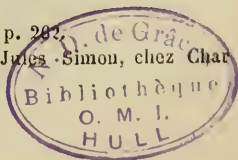 p. 202.
Jules Simon, chez Char
N. D. de Grâce
Bibliothèque
O. M. I.
HULL